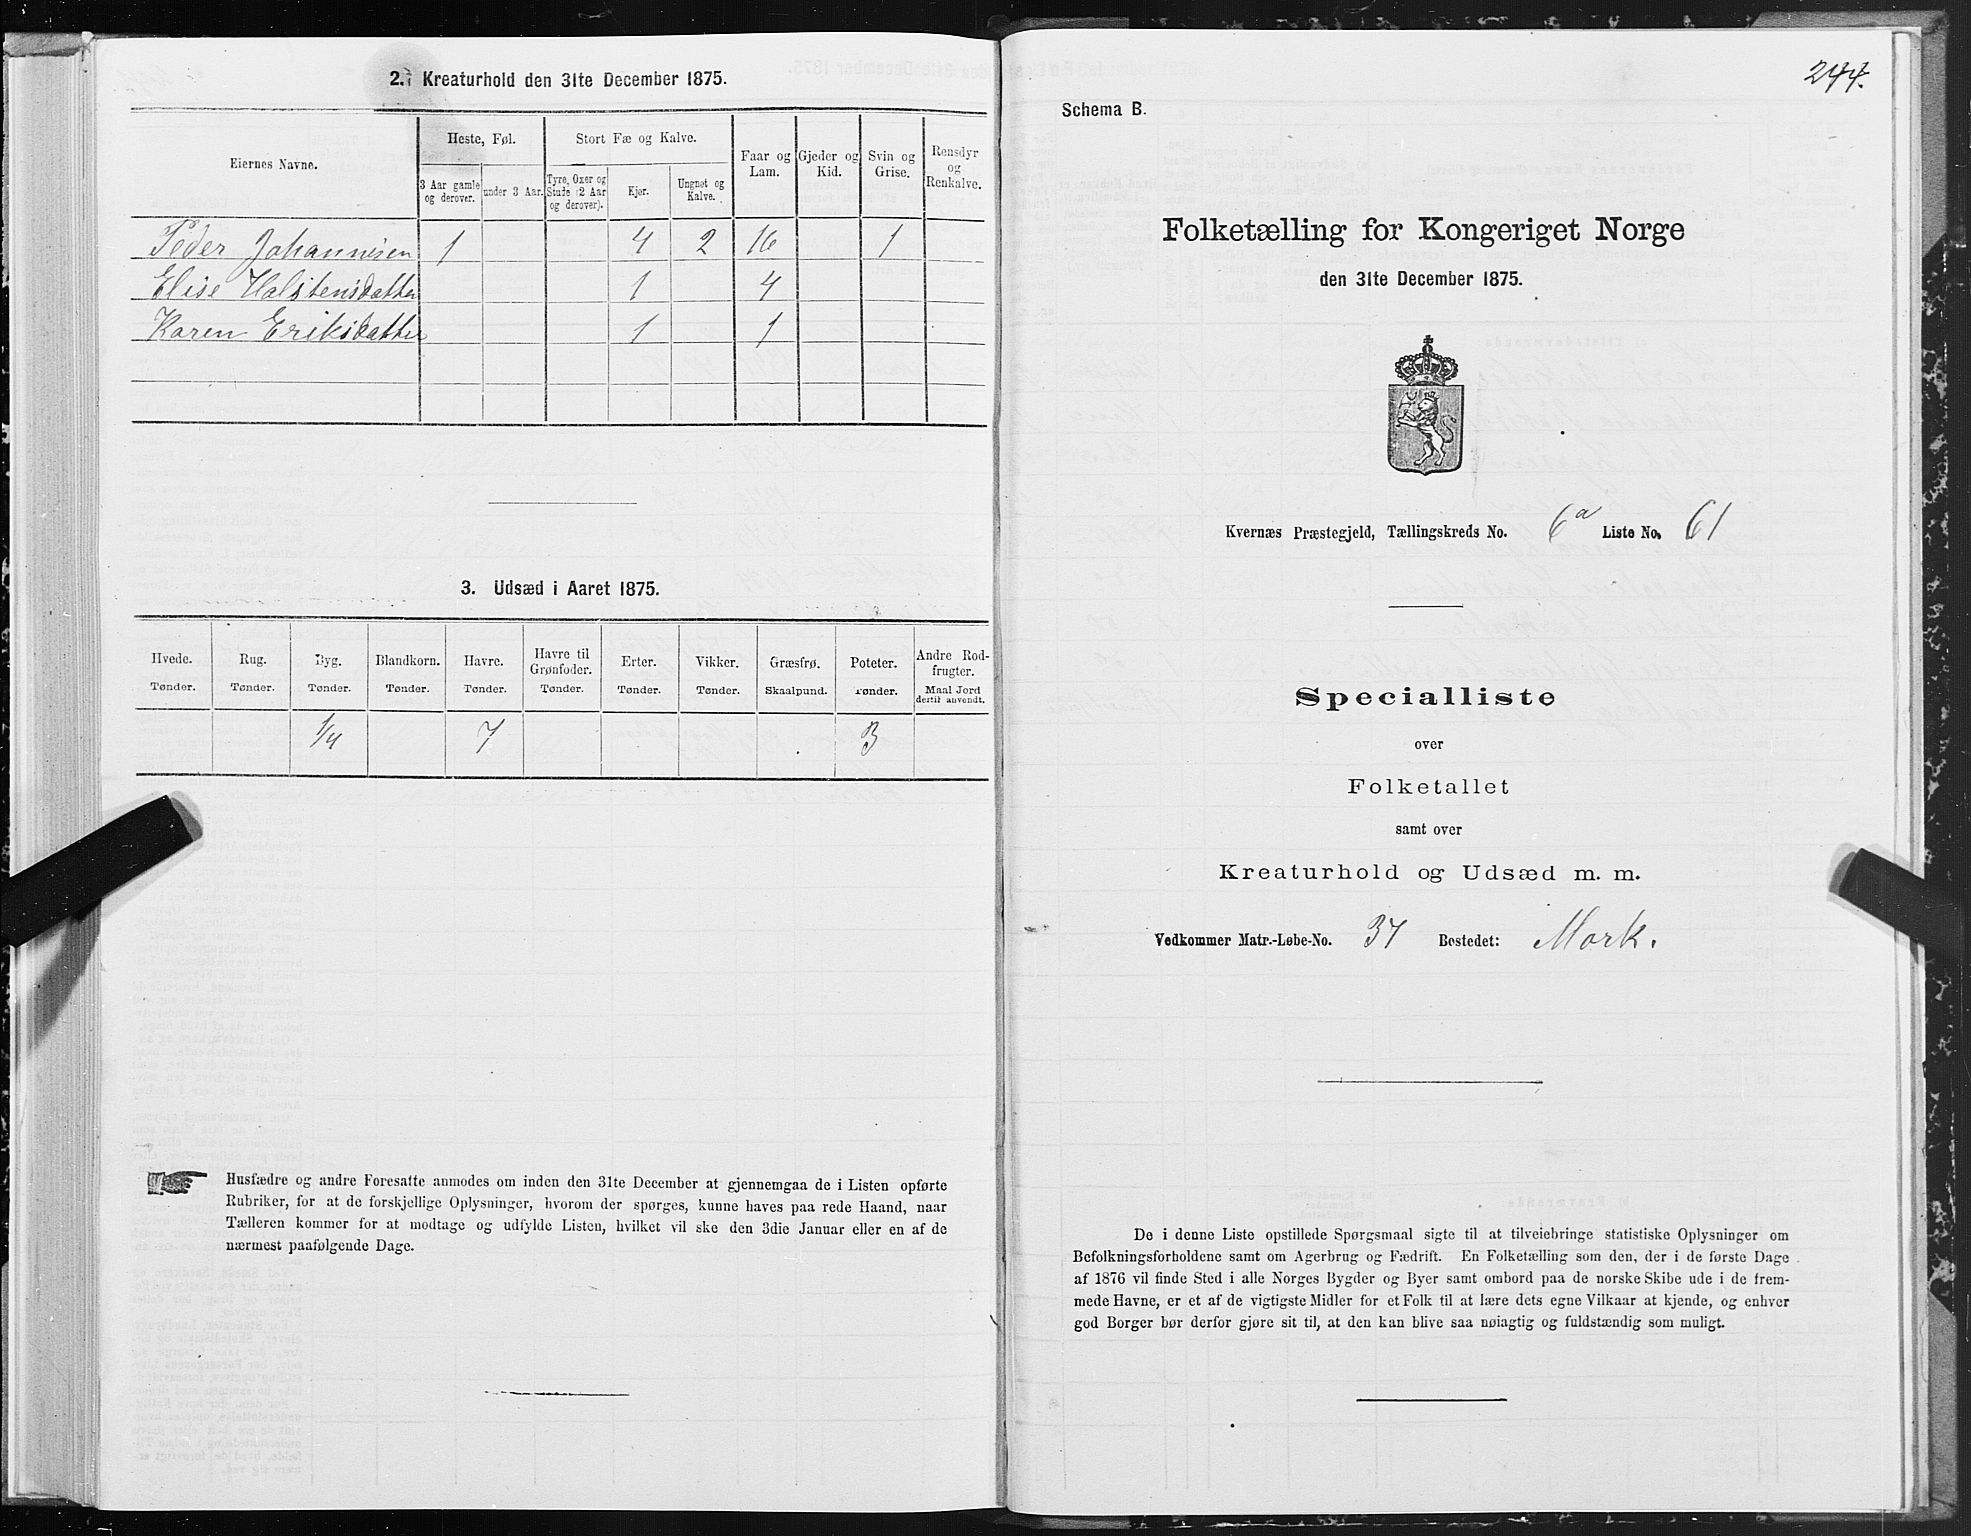 2. Kreaturhold den 31te December 1875.
Eiernes Navne.
Heste, Føl.
Stort Fæ og Kalve.
Faar og Lam.
Gjeder og Kid.
Svin og Grise.
Rensdyr og Renkalve.
3 Aar gamle og derover.
under 3 Aar.
Tyre, Oxer og Stude (2 Aar og derover).
Kjør.
Ungnøt og Kalve.
Peder Johannesen 1 4 2 16 1
Elise Halstensdatter 1 4
Karen Eriksdatter 1 1
3. Udsæd i Aaret 1875.
Hvede. Rug. Byg. Blandkorn. Havre. Havre til Grønfoder. Erter. Vikker. Græsfrø. Poteter. Andre Rodfrugter.
Tønder. Tønder. Tønder. Tønder. Tønder. Tønder. Tønder. Tønder. Skaalpund. Tønder. Maal Jord dertil anvendt.
1/4 7 3
Husfædre og andre Foresatte anmodes om inden den 31te December at gjennemgaa de i Listen opførte
Rubriker, for at de forskjellige Oplysninger, hvorom der spørges, kunne haves paa rede Haand, naar
Tælleren kommer for at modtage og udfylde Listen, hvilket vil ske den 3die Januar eller en af de
nærmest paafølgende Dage.
244.
Schema B.
Folketælling for Kongeriget Norge
den 31te December 1875.
Kvernæs Præstegjeld, Tællingskreds No. 6a Liste No. 61
Specialliste
over
Folketallet
samt over
Kreaturhold og Udsæd m. m.
Vedkommer Matr.-Løbe-No. 37 Bostedet: Mork.
De i denne Liste opstillede Spørgsmaal sigte til at tilveiebringe statistiske Oplysninger om
Befolkningsforholdene samt om Agerbrug og Fædrift. En Folketælling som den, der i de første Dage
af 1876 vil finde Sted i alle Norges Bygder og Byer samt ombord paa de norske Skibe ude i de frem-
mede Havne, er et af de vigtigste Midler for et Folk til at lære dets egne Vilkaar at kjende, og enhver
god Borger bør derfor gjøre sit til, at den kan blive saa nøiagtig og fuldstændig som muligt.